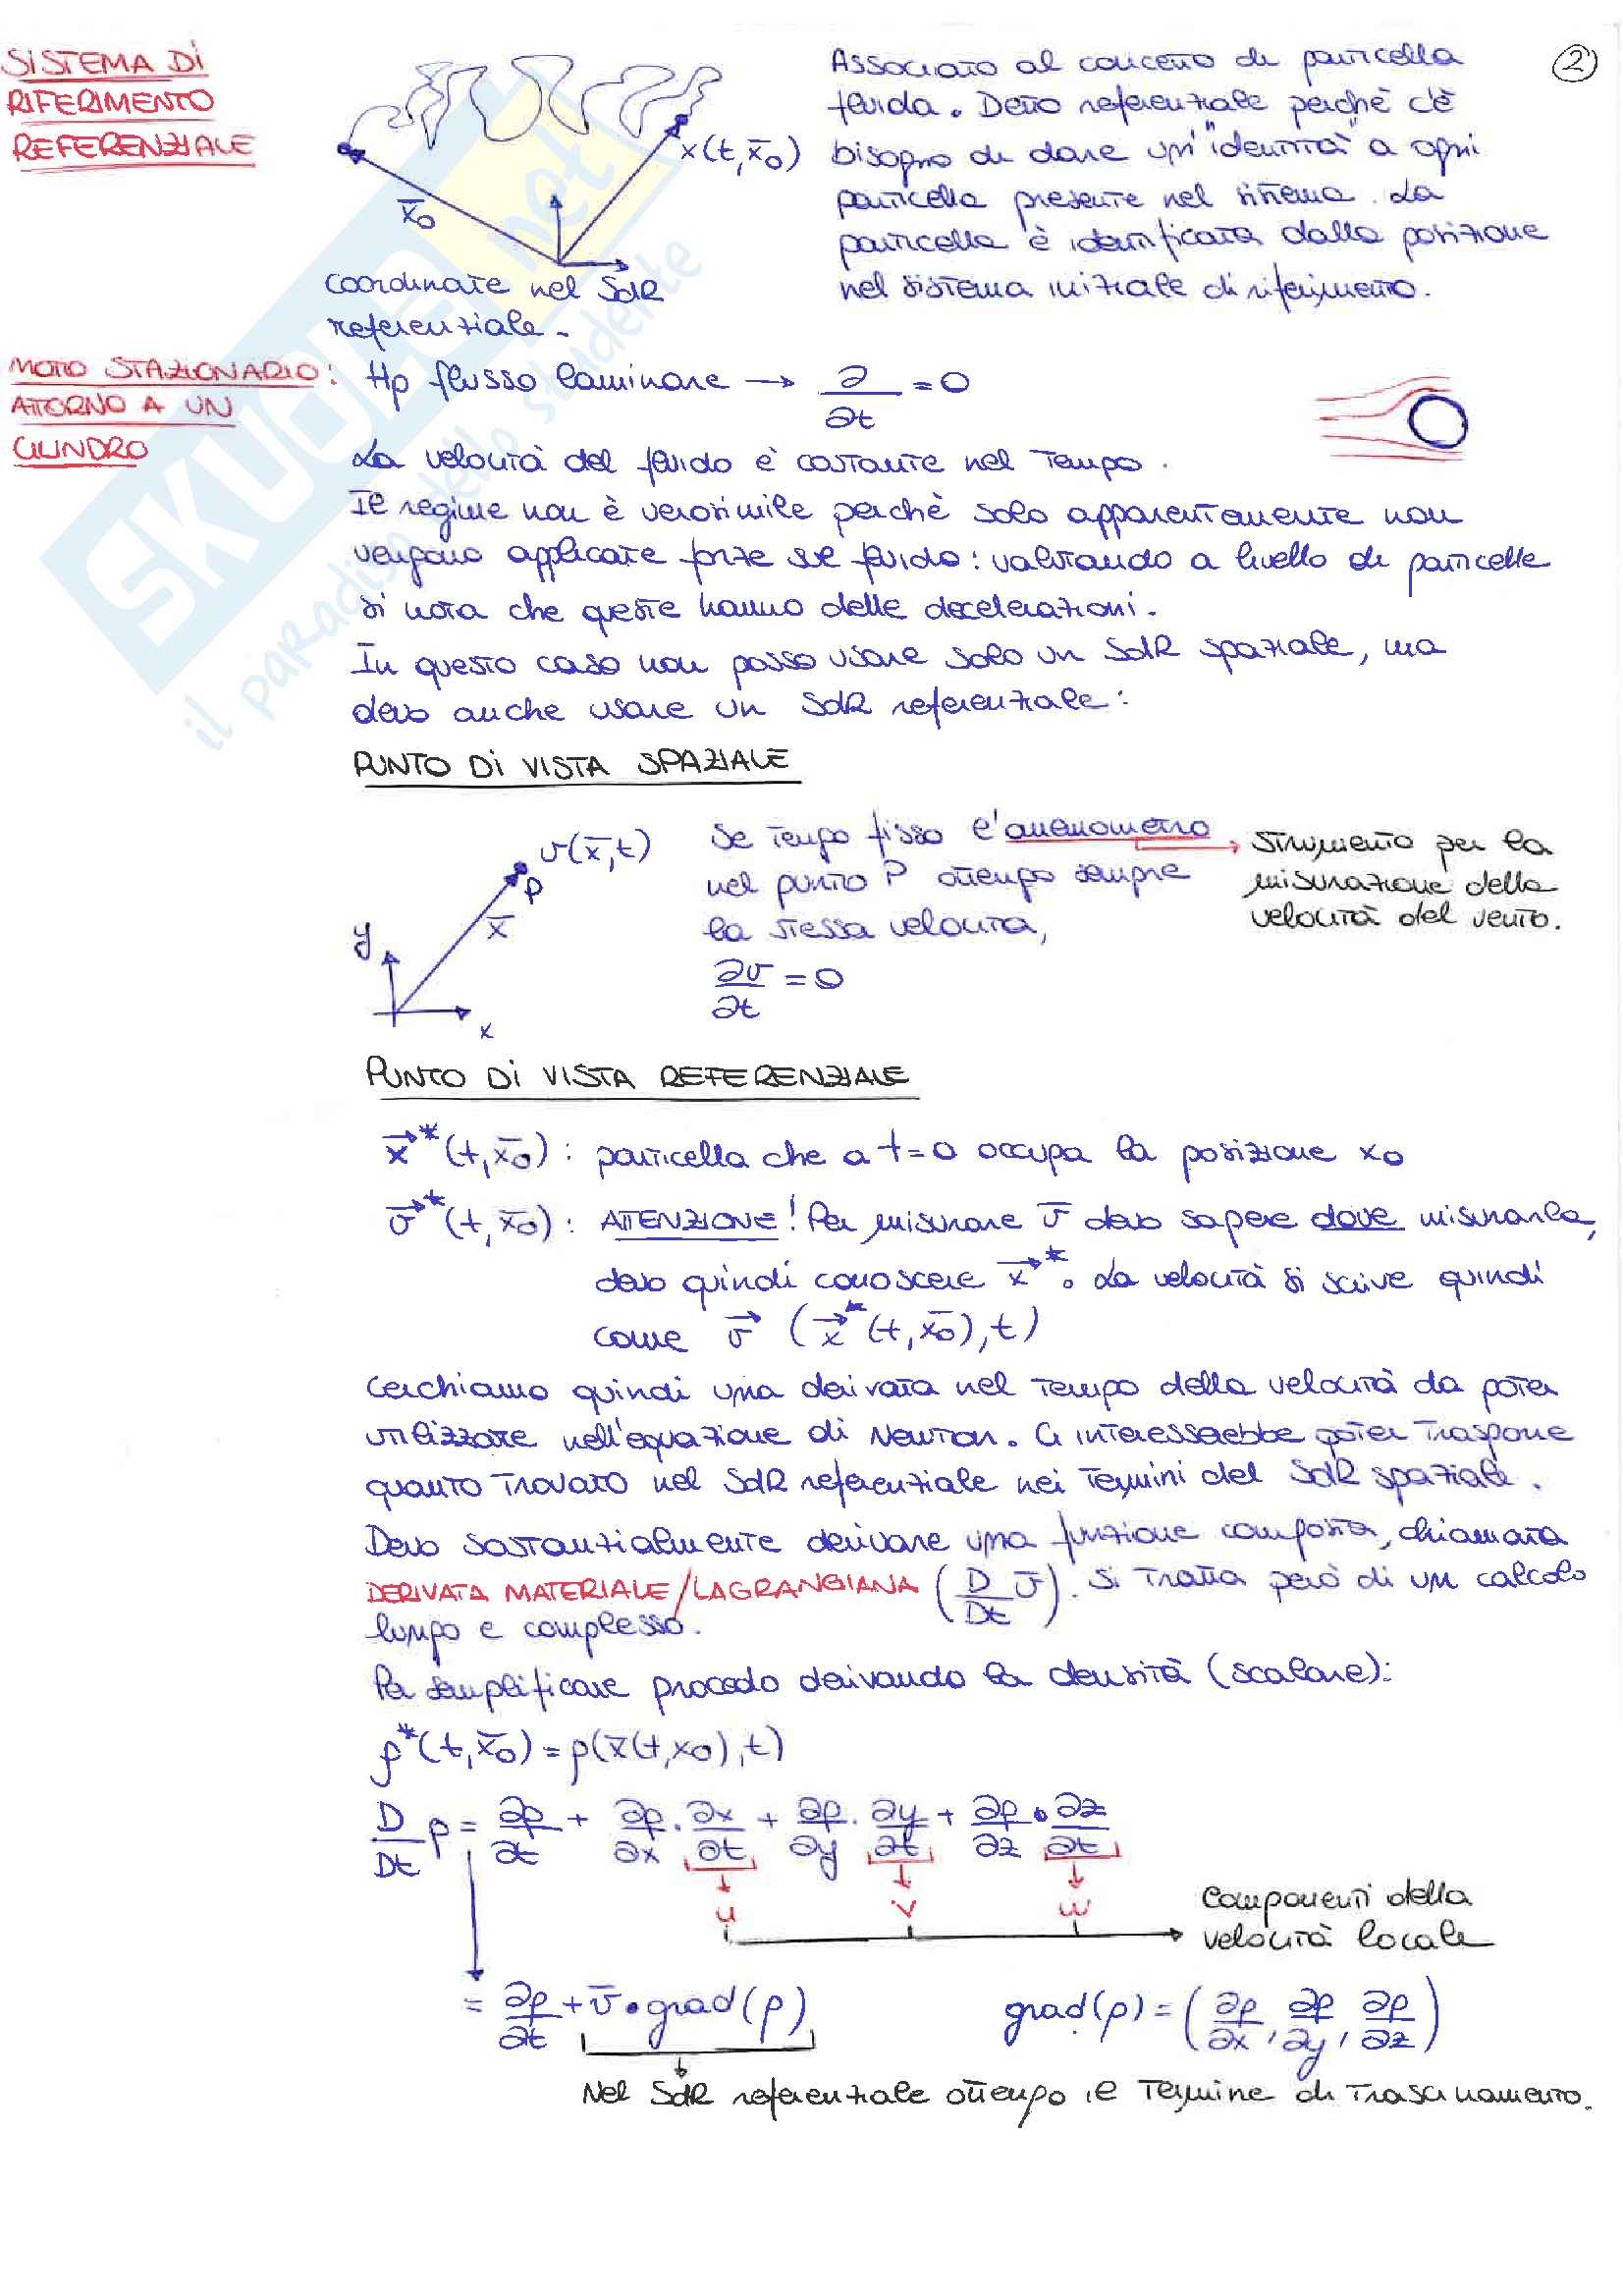 2
SISTEMA DI
RIFERIMENTO
REFERENZIALE
x̄0
x(t, x̄0)
coordinate nel SdR
referenziale.
Associato al concetto di particella
fluida. Detto referenziale perchè c'è
bisogno di dare un'"identità" a ogni
particella presente nel sistema. La
particella è identificata dalla posizione
nel sistema iniziale di riferimento.
MOTO STAZIONARIO:
ATTORNO A UN
CILINDRO
Hp flusso laminare → ∂/∂t = 0
La velocità del fluido è costante nel tempo.
Il regime non è verosimile perchè solo apparentemente non
vengono applicate forze sul fluido: valutando a livello di particelle
si nota che queste hanno delle decelerazioni.
In questo caso non posso usare solo un SdR spaziale, ma
devo anche usare un SdR referenziale:
PUNTO DI VISTA SPAZIALE
v(x̄,t)
P
x̄
y
x
Se tengo fisso l'anemometro
nel punto P ottengo sempre
la stessa velocità,
∂v/∂t = 0
→ Strumento per la
misurazione della
velocità del vento.
PUNTO DI VISTA REFERENZIALE
x⃗*(t, x̄0): particella che a t=0 occupa la posizione x0
v⃗*(t, x̄0): ATTENZIONE! Per misurare v̄ devo sapere dove misurarla,
devo quindi conoscere x⃗*. La velocità si scrive quindi
come v⃗ (x⃗*(t, x̄0), t)
Cerchiamo quindi una derivata nel tempo della velocità da poter
utilizzare nell'equazione di Newton. Ci interesserebbe poter trasporre
quanto trovato nel SdR referenziale nei termini del SdR spaziale.
Devo sostanzialmente derivare una funzione composta, chiamata
DERIVATA MATERIALE/LAGRANGIANA (D/Dt v̄). Si tratta però di un calcolo
lungo e complesso.
Per semplificare procedo derivando la densità (scalare):
ρ*(t, x̄0) = ρ(x̄(t,x0), t)
D/Dt ρ = ∂ρ/∂t + ∂ρ/∂x · ∂x/∂t + ∂ρ/∂y · ∂y/∂t + ∂ρ/∂z · ∂z/∂t
u v w
Componenti della
velocità locale
= ∂ρ/∂t + v̄ • grad(ρ)
grad(ρ) = (∂ρ/∂x, ∂ρ/∂y, ∂ρ/∂z)
Nel SdR referenziale ottengo il termine di trascinamento.
SKUOLA.net
il paradiso dello studente